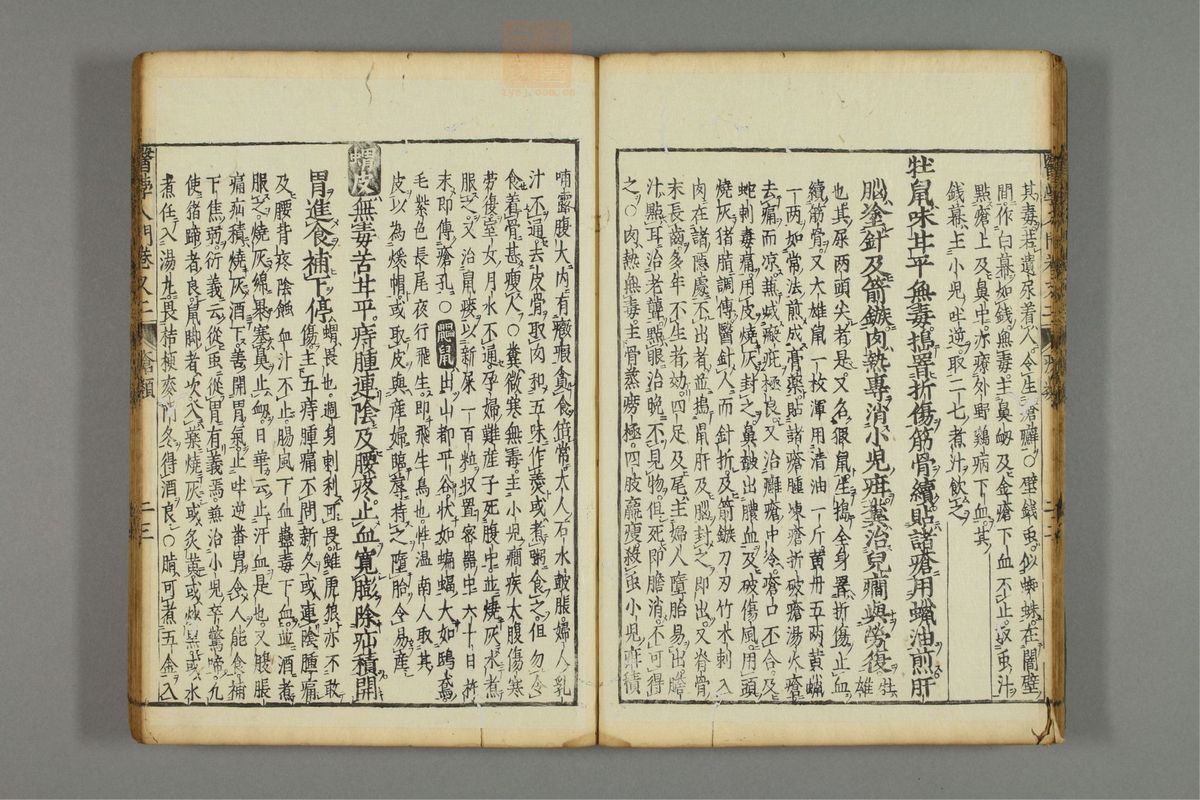 其毒若遺尿着人令生瘡癬○壁錢虫似蜘蛛在闇壁
間作白幕如錢無毒主鼻衄及金瘡下血不止取虫汁
點瘡上及鼻中亦療外野鷄病下血其
錢幕主小兒吐逆取二七煮汁飲之
牡鼠味甘平無毒搗罯折傷筋骨續貼諸瘡用蠟油煎肝
腦塗針及箭鏃肉熱專消小兒疳蒸治兒癎與勞復牡雄
也其尿兩頭尖者是又名猳鼠生搗全身罯折傷止血
續筋骨又大雄鼠一枚渾用清油一斤黃丹五兩黃蠟
一兩如常法煎成膏藥貼諸瘡腫凍瘡折破瘡湯火瘡
去痛而凉兼滅瘢疵極良又治癰瘡中冷瘡口不合及
蛇刺毒痛用皮燒灰封之鼻皷出膿血及破傷風用頭
燒灰猪脂調傅醫針人而針折及箭鏃刀刃竹木刺入
肉在諸隱處不出者並搗鼠肝及腦封之即出又脊骨
末長齒多年不生者効四足及尾主婦人墮胎易出膽
汁點耳治老聾點眼治晚不見物但死即膽消不可得
之○肉熱無毒主骨蒸勞極四肢羸瘦殺虫小兒疳積
哺露腹大內有癥瘕貪食倍常大人石水皷脹婦人乳
汁不通去皮骨取肉和五味作羹或煮粥食之但勿令
食着骨甚瘦人○糞微寒無毒主小兒癎疾大腹傷寒
勞復室女月水不通孕婦難産子死腹中並燒灰水煮
服之又治鼠瘻以新屎一百粒収置密器中六十日杵
末即傅瘡孔○鼺鼠出山都平谷狀如蝙蝠大如鴟鳶
毛紫色長尾夜行飛生即飛生鳥也性温南人取其
皮以為煖帽或取皮與産婦臨蓐持之墮胎令易産
蝟皮無毒苦甘平痔腫連陰及腰疼止血寬膨除疝積開
胃進食補下停蝟畏也週身刺利可畏雖虎狼亦不敢
傷主五痔腫痛不問新久或連陰腫痛
及腰背疼陰蝕血汁不止腸風下血蠱毒下血並酒煮
服之燒灰綿裹塞鼻止衄日華云止汗血是也又腹脹
痛疝積燒灰酒下善開胃氣止吐逆番胃令人能食補
下焦弱衍義云從虫從胃有義焉兼治小兒卒驚啼凡
使猪蹄者良鼠脚者次入藥燒灰或炙黃或炒黑或水
煮任入湯丸畏桔梗麥門冬得酒良○脂可煮五金入
醫學入門卷
瘡類
二三